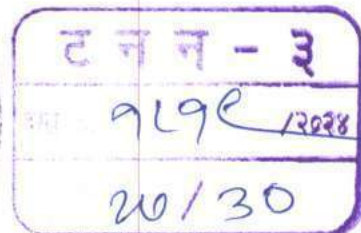 ट न न - ३
१८१९ /२०२४
२७/३०